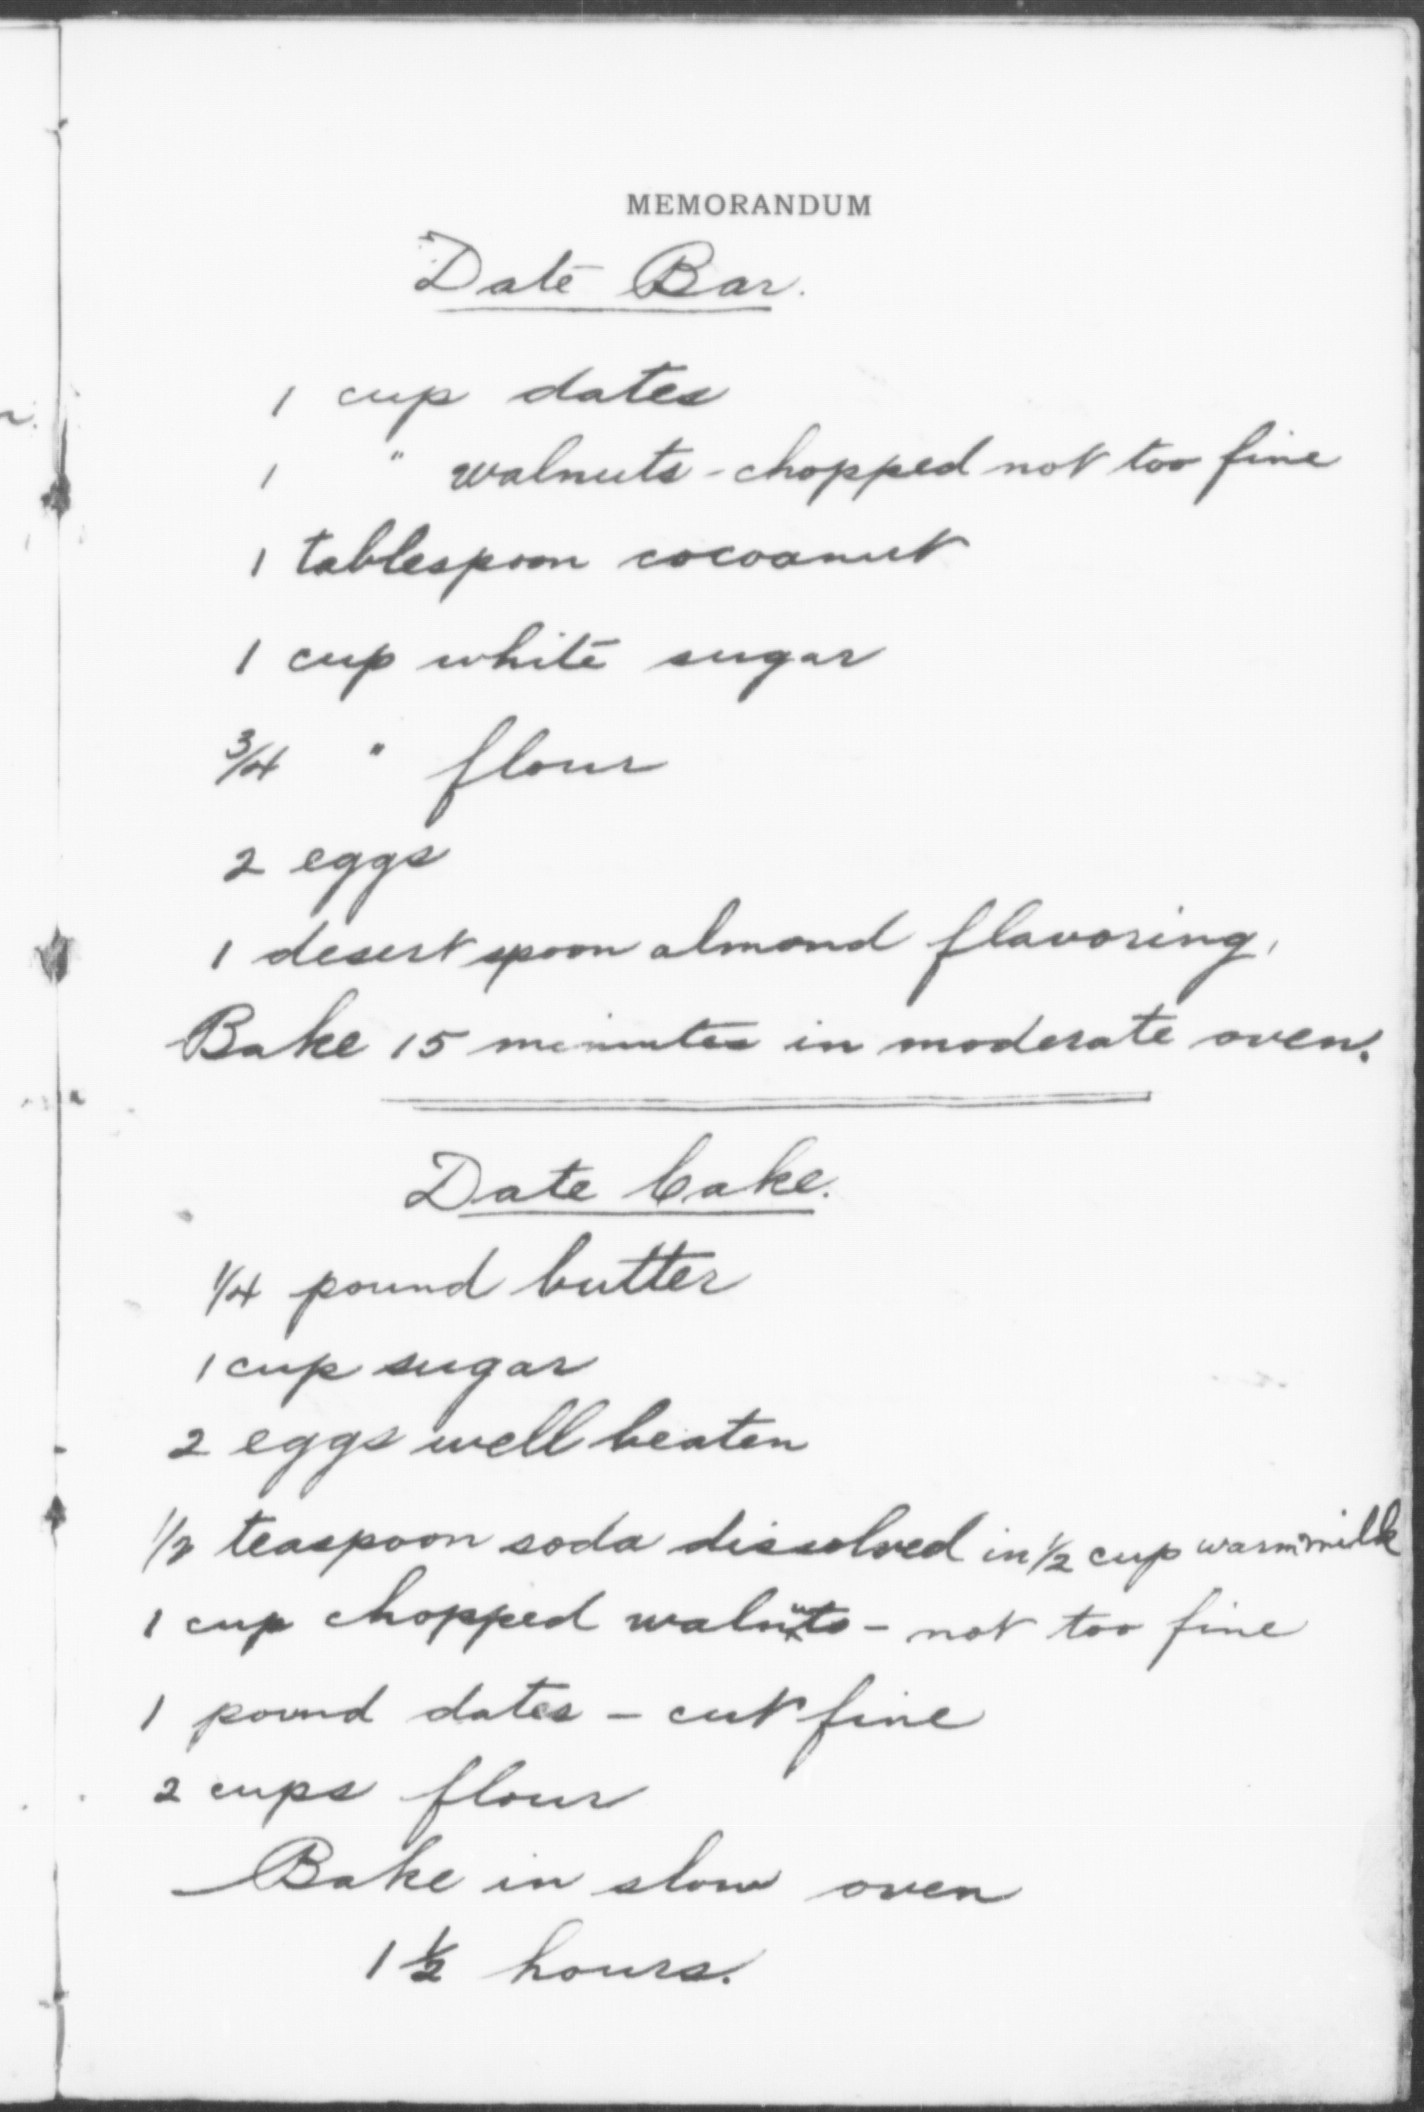 MEMORANDUM
Date Bar.
1 cup dates
1 " walnuts - chopped not too fine
1 tablespoon cocoanut
1 cup white sugar
3/4 " flour
2 eggs
1 desert spoon almond flavoring,
Bake 15 minutes in moderate oven.
Date Cake.
1/4 pound butter
1 cup sugar
2 eggs well beaten
1/2 teaspoon soda dissolved in 1/2 cup warm milk
1 cup chopped walnuts - not too fine
1 pound dates - cut fine
2 cups flour
Bake in slow oven
1 1/2 hours.